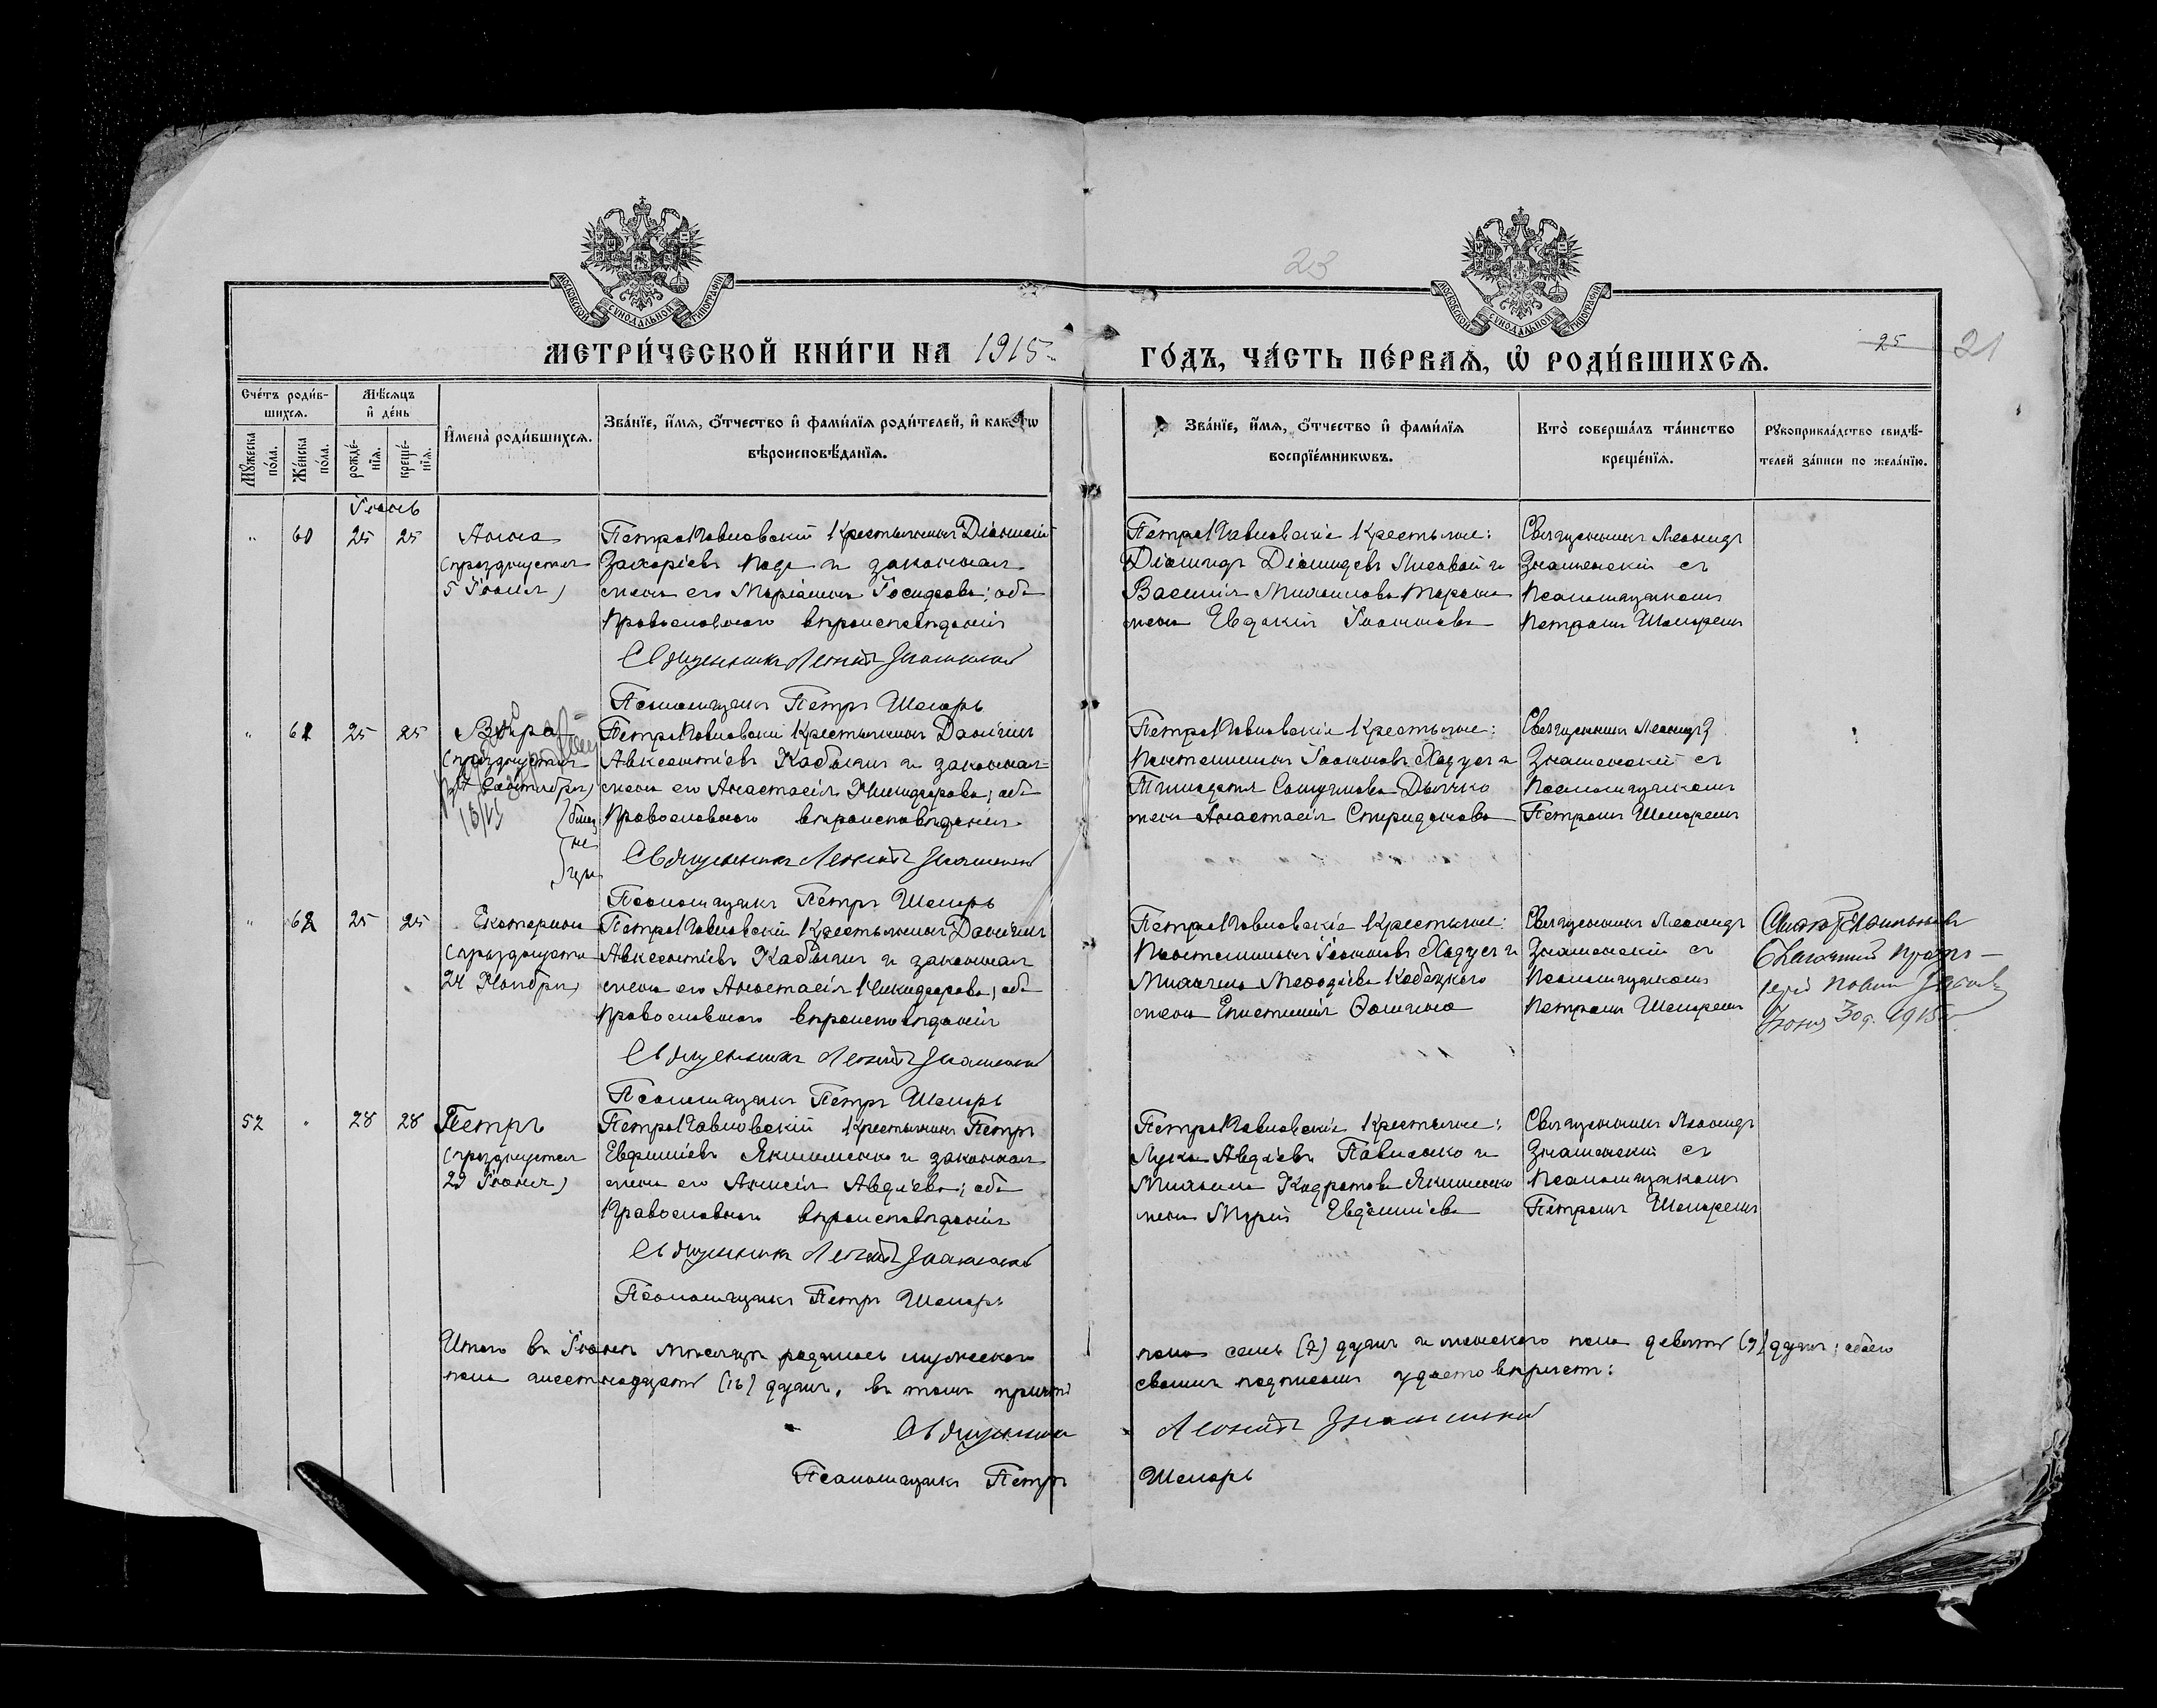 23
МОСКОВСКОЙ СУНОДАЛЬНОЙ ТИПОГРАФІИ
МОСКОВСКОЙ СУНОДАЛЬНОЙ ТИПОГРАФІИ
МЕТРИ́ЧЕСКОЙ КНИ́ГИ НА 1915
ГО́ДЪ, ЧА́СТЬ ПЕ́РВАѦ, Ѡ҆ РОДИ́ВШИХСѦ.
25 21
Сче́тъ роди́в-
шихсѧ.
Мѣ́сѧцъ
и҆ де́нь
Мꙋ́жеска
по́ла.
Же́нска
по́ла.
рожде́-
нїѧ.
креще́-
нїѧ.
И҆мена̀ роди́вшихсѧ.
Зва́нїе, и҆́мѧ, ѻ҆́тчество и҆ фамі́лїѧ роди́телей, и҆ како́гѡ
вѣроисповѣ́данїѧ.
Зва́нїе, и҆́мѧ, ѻ҆́тчество и҆ фамі́лїѧ
воспрїе́мникѡвъ.
Кто̀ соверша́лъ та́инство
креще́нїѧ.
Рꙋкоприкла́дство свидѣ́-
телей за́писи по жела́нїю.
Іюнь
" 60 25 25 Анна
(празднуется
5 Іюля)
ПетроПавловскій Крестьянинъ Діонисій
Захаріевъ и законная
жена его Маріанна; оба
Православнаго вѣроисповѣданія
Священникъ Леонидъ Знаменскій
Псаломщикъ Петръ Шепарь
ПетроПавловскіе Крестьяне:
Діомидъ Діомидовъ Лисовой и
Василія Михайлова
жена Евдокія Іоаннова
Священникъ Леонидъ
Знаменскій съ
Псаломщикомъ
Петромъ Шепаремъ
" 61 25 25 Вѣра
(празднуется
17 Сентября)
16/VI
ПетроПавловскій Крестьянинъ Даніилъ
Авксентіевъ Кабысъ и законная
жена его Анастасія Никифорова; оба
Православнаго вѣроисповѣданія
Священникъ Леонидъ Знаменскій
Псаломщикъ Петръ Шепарь
ПетроПавловскіе Крестьяне:
Пантелеимонъ Іоанновъ и
Тимофея Дьячко
жена Анастасія Спиридонова
Священникъ Леонидъ
Знаменскій съ
Псаломщикомъ
Петромъ Шепаремъ
" 62 25 25 Екатерина
(празднуется
24 Ноября)
ПетроПавловскій Крестьянинъ Даніилъ
Авксентіевъ Кабысъ и законная
жена его Анастасія Никифорова; оба
Православнаго вѣроисповѣданія
Священникъ Леонидъ Знаменскій
Псаломщикъ Петръ Шепарь
ПетроПавловскіе Крестьяне:
Пантелеимонъ Іоанновъ и
Михаила Мефодіева Кобецкого
жена Епистимія Фомина
Священникъ Леонидъ
Знаменскій съ
Псаломщикомъ
Петромъ Шепаремъ
Благочинный Прото-
іерей
Іюня 30 д. 1915 г.
52 " 28 28 Петръ
(празднуется
29 Іюня)
ПетроПавловскій Крестьянинъ Петръ
Евфиміевъ Якименко и законная
жена его Анисія Авдіева; оба
Православнаго вѣроисповѣданія
Священникъ Леонидъ Знаменскій
Псаломщикъ Петръ Шепарь
ПетроПавловскіе Крестьяне:
Лука Авдіевъ Павленко и
Михаила Кодратова Якименко
жена Марія Евфиміева
Священникъ Леонидъ
Знаменскій съ
Псаломщикомъ
Петромъ Шепаремъ
Итого въ Іюнѣ мѣсяцѣ родилось мужескаго
пола семь (7) душъ и женскаго пола девять (9) душъ; обоего
пола шестнадцать (16) душъ, въ томъ причтъ
своимъ подписомъ удостовѣряетъ:
Священникъ Леонидъ Знаменскій
Псаломщикъ Петръ Шепарь